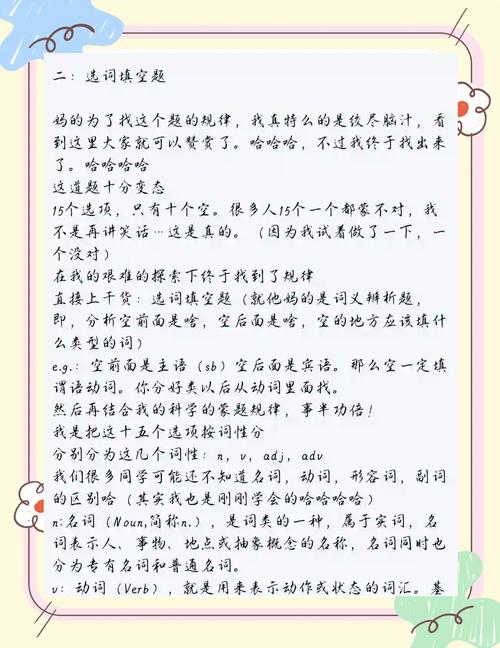 二：选词填空题
妈的为了找这个题的规律，我真特么的是绞尽脑汁，看
到这里大家就可以赞赏了。哈哈哈，不过我终于找出来
了。哈哈哈哈
这道题十分变态
15个选项，只有十个空。很多人15个一个都蒙不对，我
不是再讲笑话…这是真的。（因为我试着做了一下，一
个没对）
在我的艰难的探索下终于找到了规律
直接上干货：选词填空题（就他妈的是词义辨析题，
即，分析空前面是啥，空后面是啥，空的地方应该填什
么类型的词）
e.g.：空前面是主语（sb）空后面是宾语。那么空一定填
谓语动词。你分好类以后从动词里面找。
然后再结合我的科学的蒙题规律，事半功倍！
我是把这十五个选项按词性分
分别分为这几个词性：n，v，adj，adv
我们很多同学可能还不知道名词，动词，形容词，副词
的区别哈（其实我也是刚刚学会的哈哈哈哈）
n:名词（Noun,简称n.），是词类的一种，属于实词，名
词表示人、事物、地点或抽象概念的名称，名词同时也
分为专有名词和普通名词。
v：动词（Verb），就是用来表示动作或状态的词汇。基